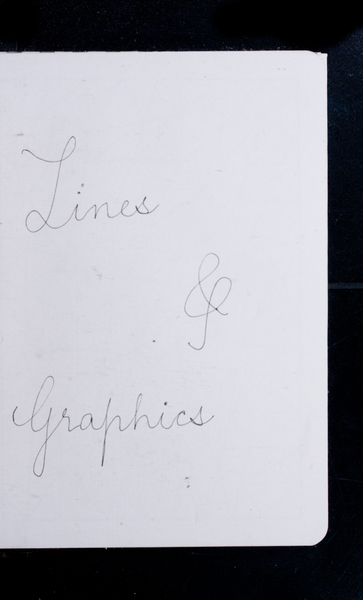 Lines
&
Graphics